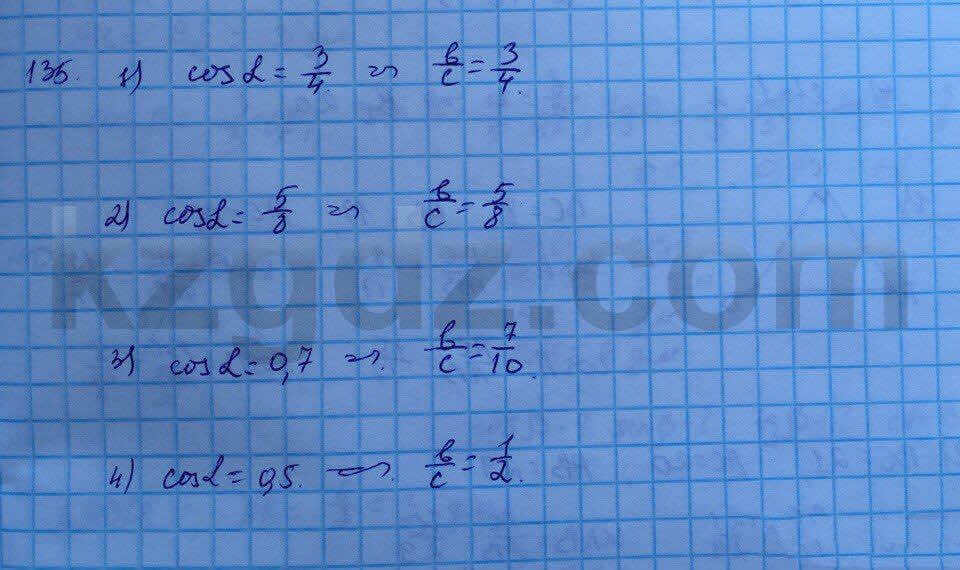 135. 1) cos α = 3/4 ⇒ b/c = 3/4.
2) cos α = 5/8 ⇒ b/c = 5/8
kzgdz.com
3) cos α = 0,7 ⇒ b/c = 7/10.
4) cos α = 0,5. ⇒ b/c = 1/2.